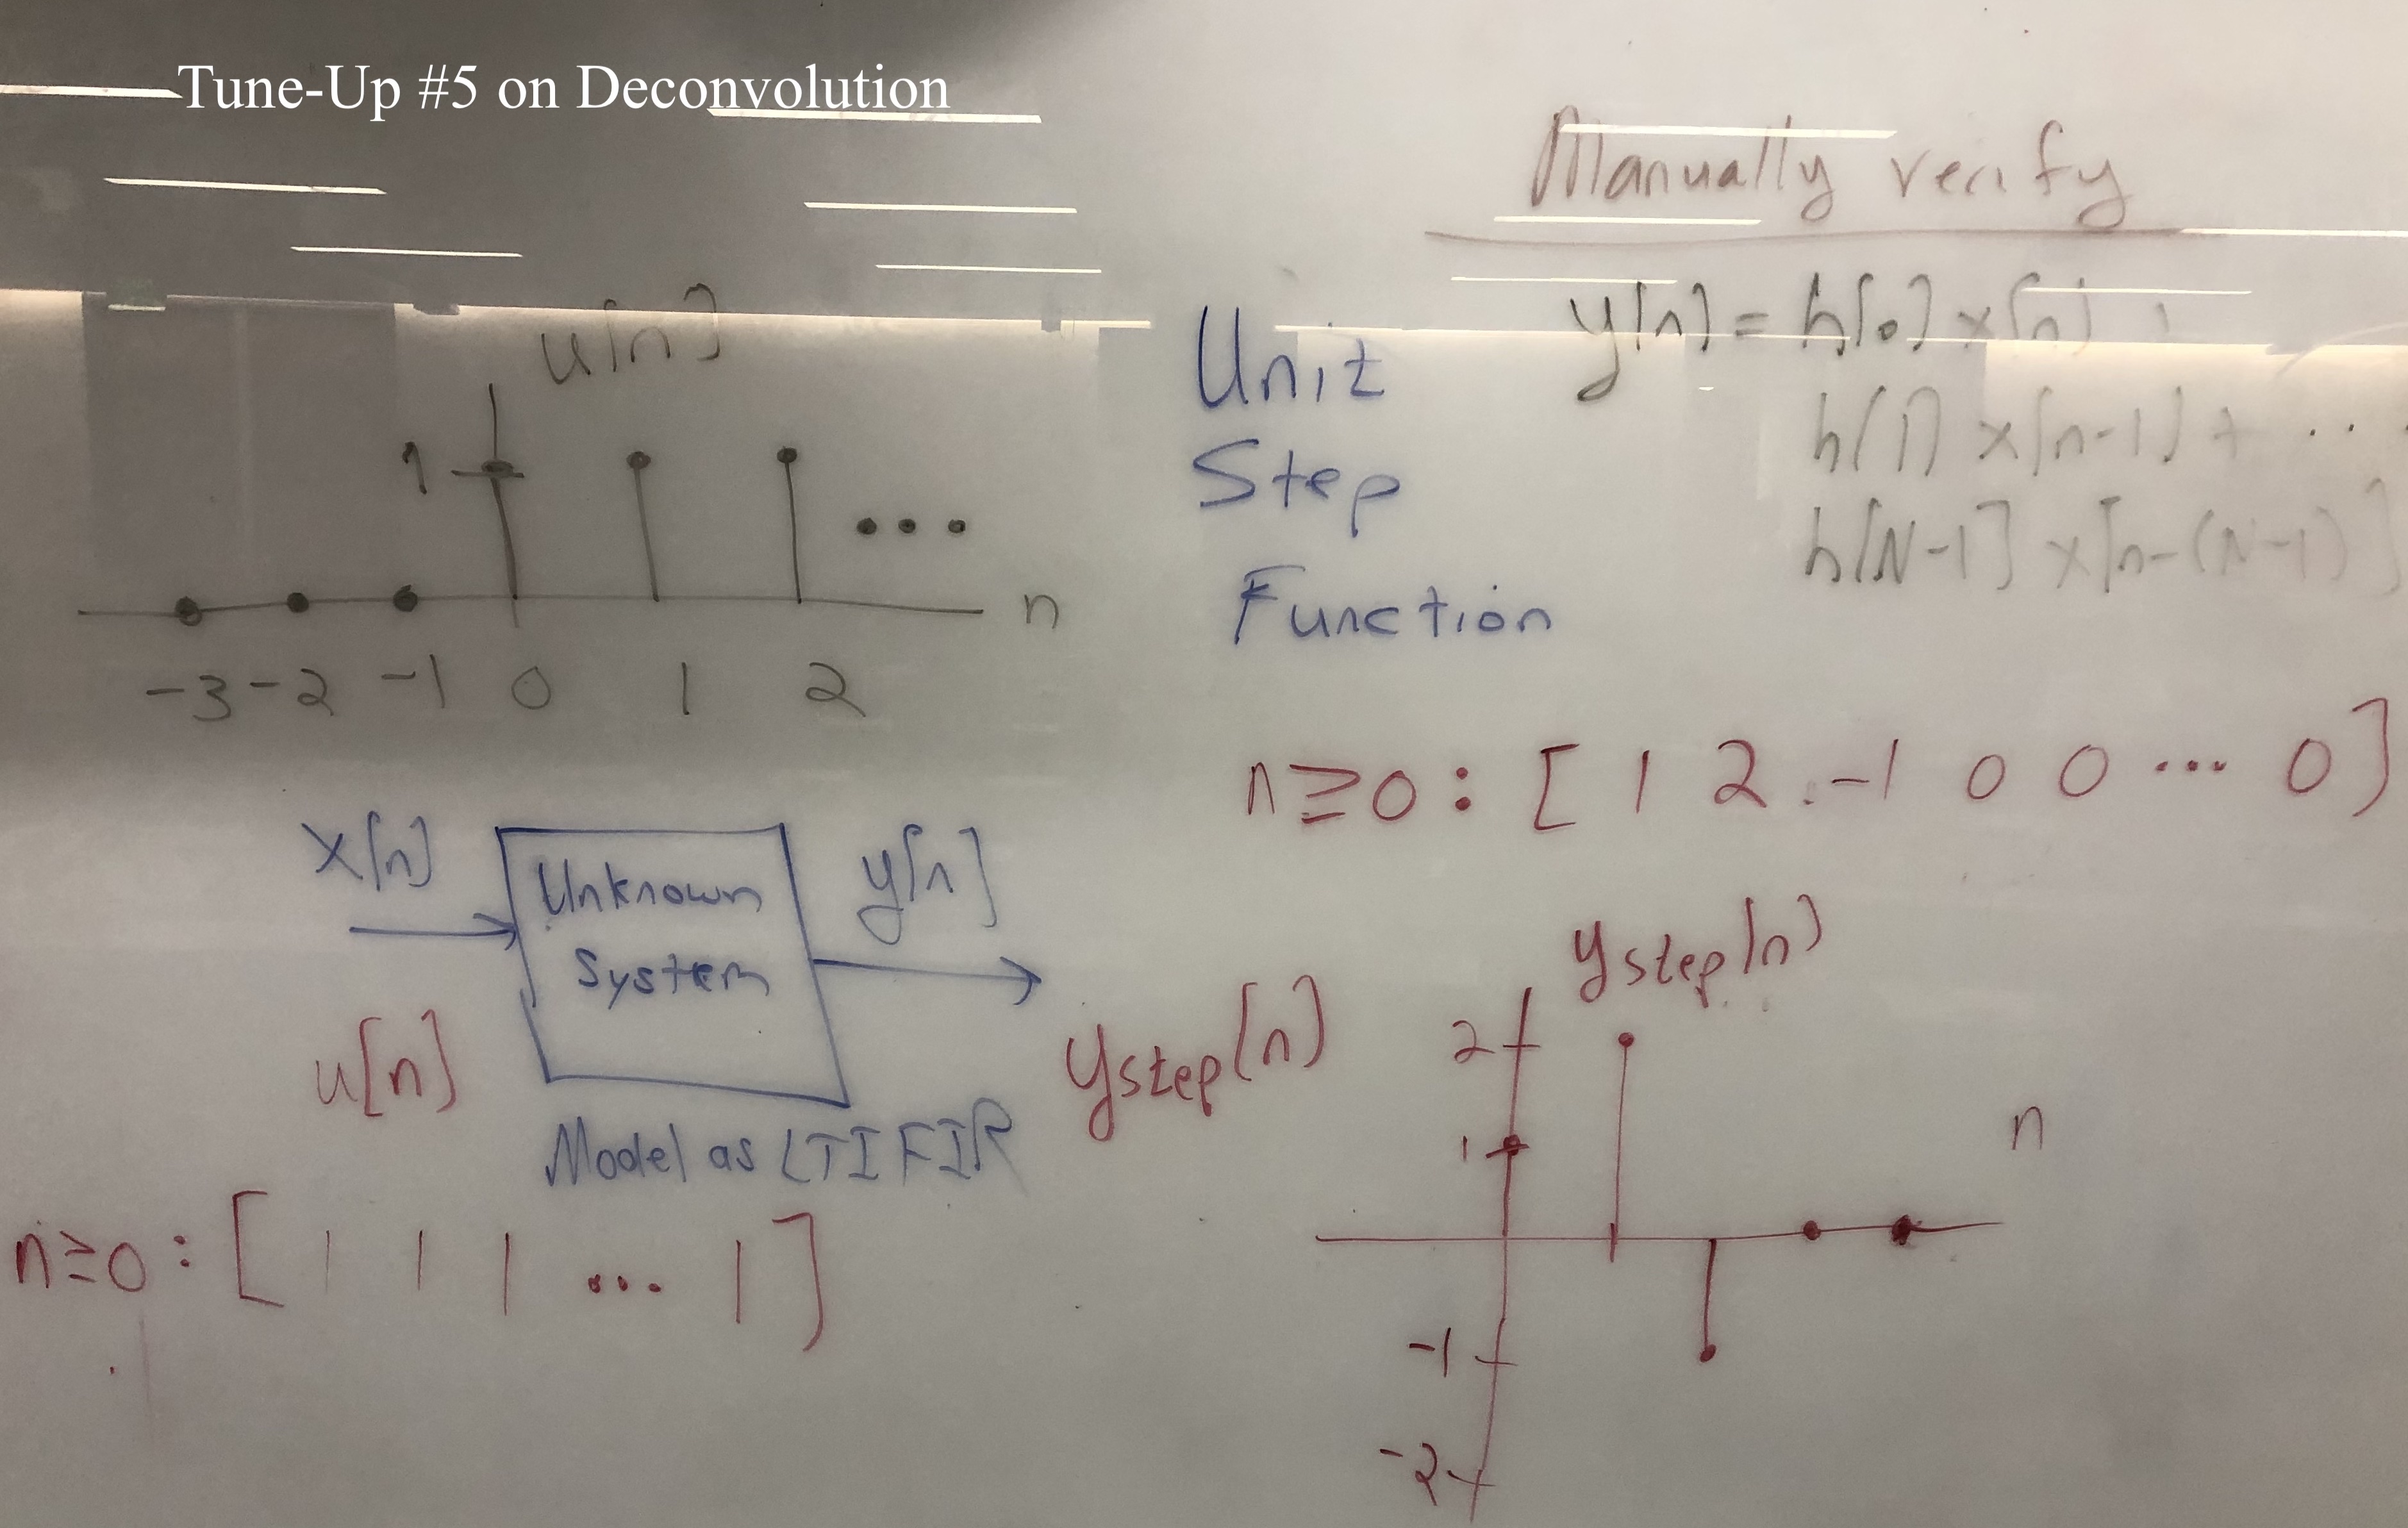 Tune-Up #5 on Deconvolution
Manually verify
y[n] = h[0] x[n] +
h[1] x[n-1] + ...
h[N-1] x[n-(N-1)]
u[n]
1
n
-3 -2 -1 0 1 2
Unit
Step
Function
n≥0 : [ 1 2 -1 0 0 ... 0 ]
x[n]
Unknown
System
y[n]
u[n]
ystep[n]
Model as LTI FIR
n≥0 : [ 1 1 1 ... 1 ]
ystep[n]
2
1
n
-1
-2